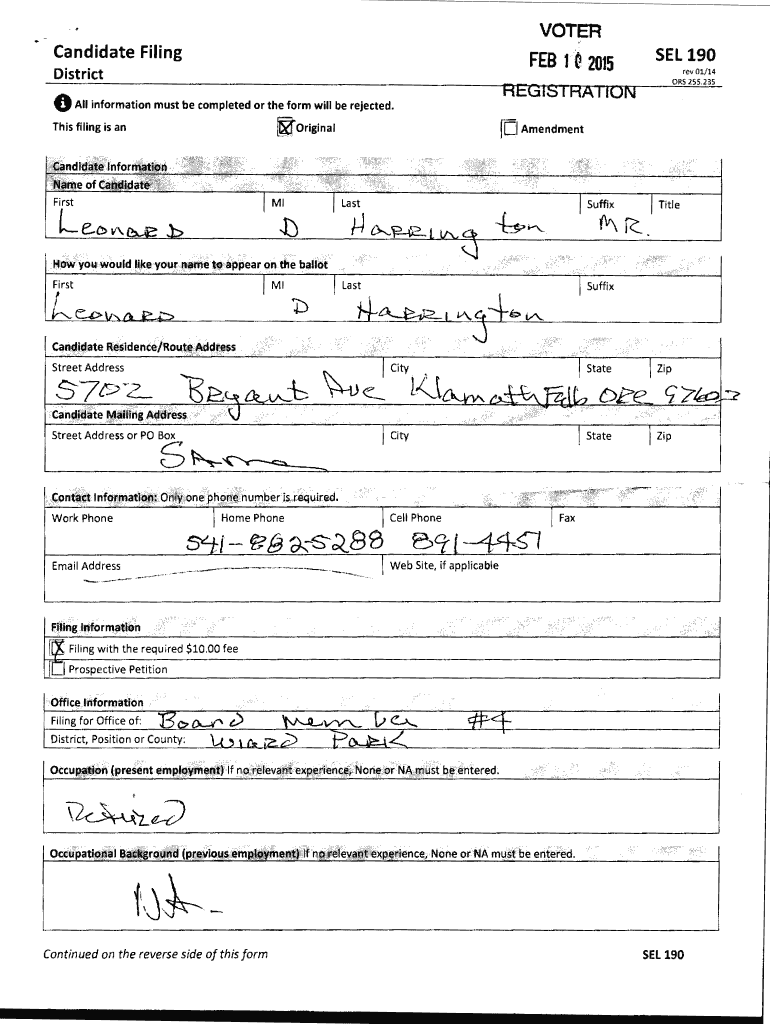 VOTER
Candidate Filing
FEB 10 2015
SEL 190
District
rev 01/14
ORS 255.235
REGISTRATION
All information must be completed or the form will be rejected.
This filing is an X Original Amendment
Candidate Information
Name of Candidate
First MI Last Suffix Title
Leonard D Harrington MR.
How you would like your name to appear on the ballot
First MI Last Suffix
Leonard D Harrington
Candidate Residence/Route Address
Street Address City State Zip
5702 Bryant Ave Klamath Falls ORE 97603
Candidate Mailing Address
Street Address or PO Box City State Zip
SAme
Contact Information: Only one phone number is required.
Work Phone Home Phone Cell Phone Fax
541-882-5288 891-4451
Email Address Web Site, if applicable
Filing Information
X Filing with the required $10.00 fee
Prospective Petition
Office Information
Filing for Office of: Board Member #4
District, Position or County: WIARD PARK
Occupation (present employment) If no relevant experience, None or NA must be entered.
Retired
Occupational Background (previous employment) If no relevant experience, None or NA must be entered.
NA-
Continued on the reverse side of this form
SEL 190